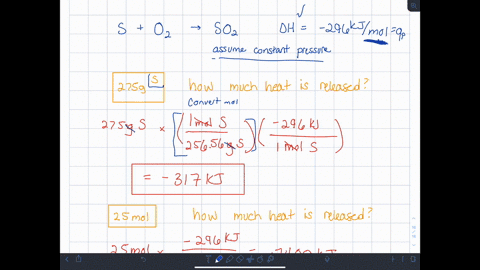 S + O₂ → SO₂ DH = -296 KJ/mol = qp
assume constant pressure
275g S how much heat is released?
Convert mol
275g S × [(1 mol S / 256.56g S)] (-296 KJ / 1 mol S)
= -317 KJ
25 mol how much heat is released?
-296 KJ
25 mol ×